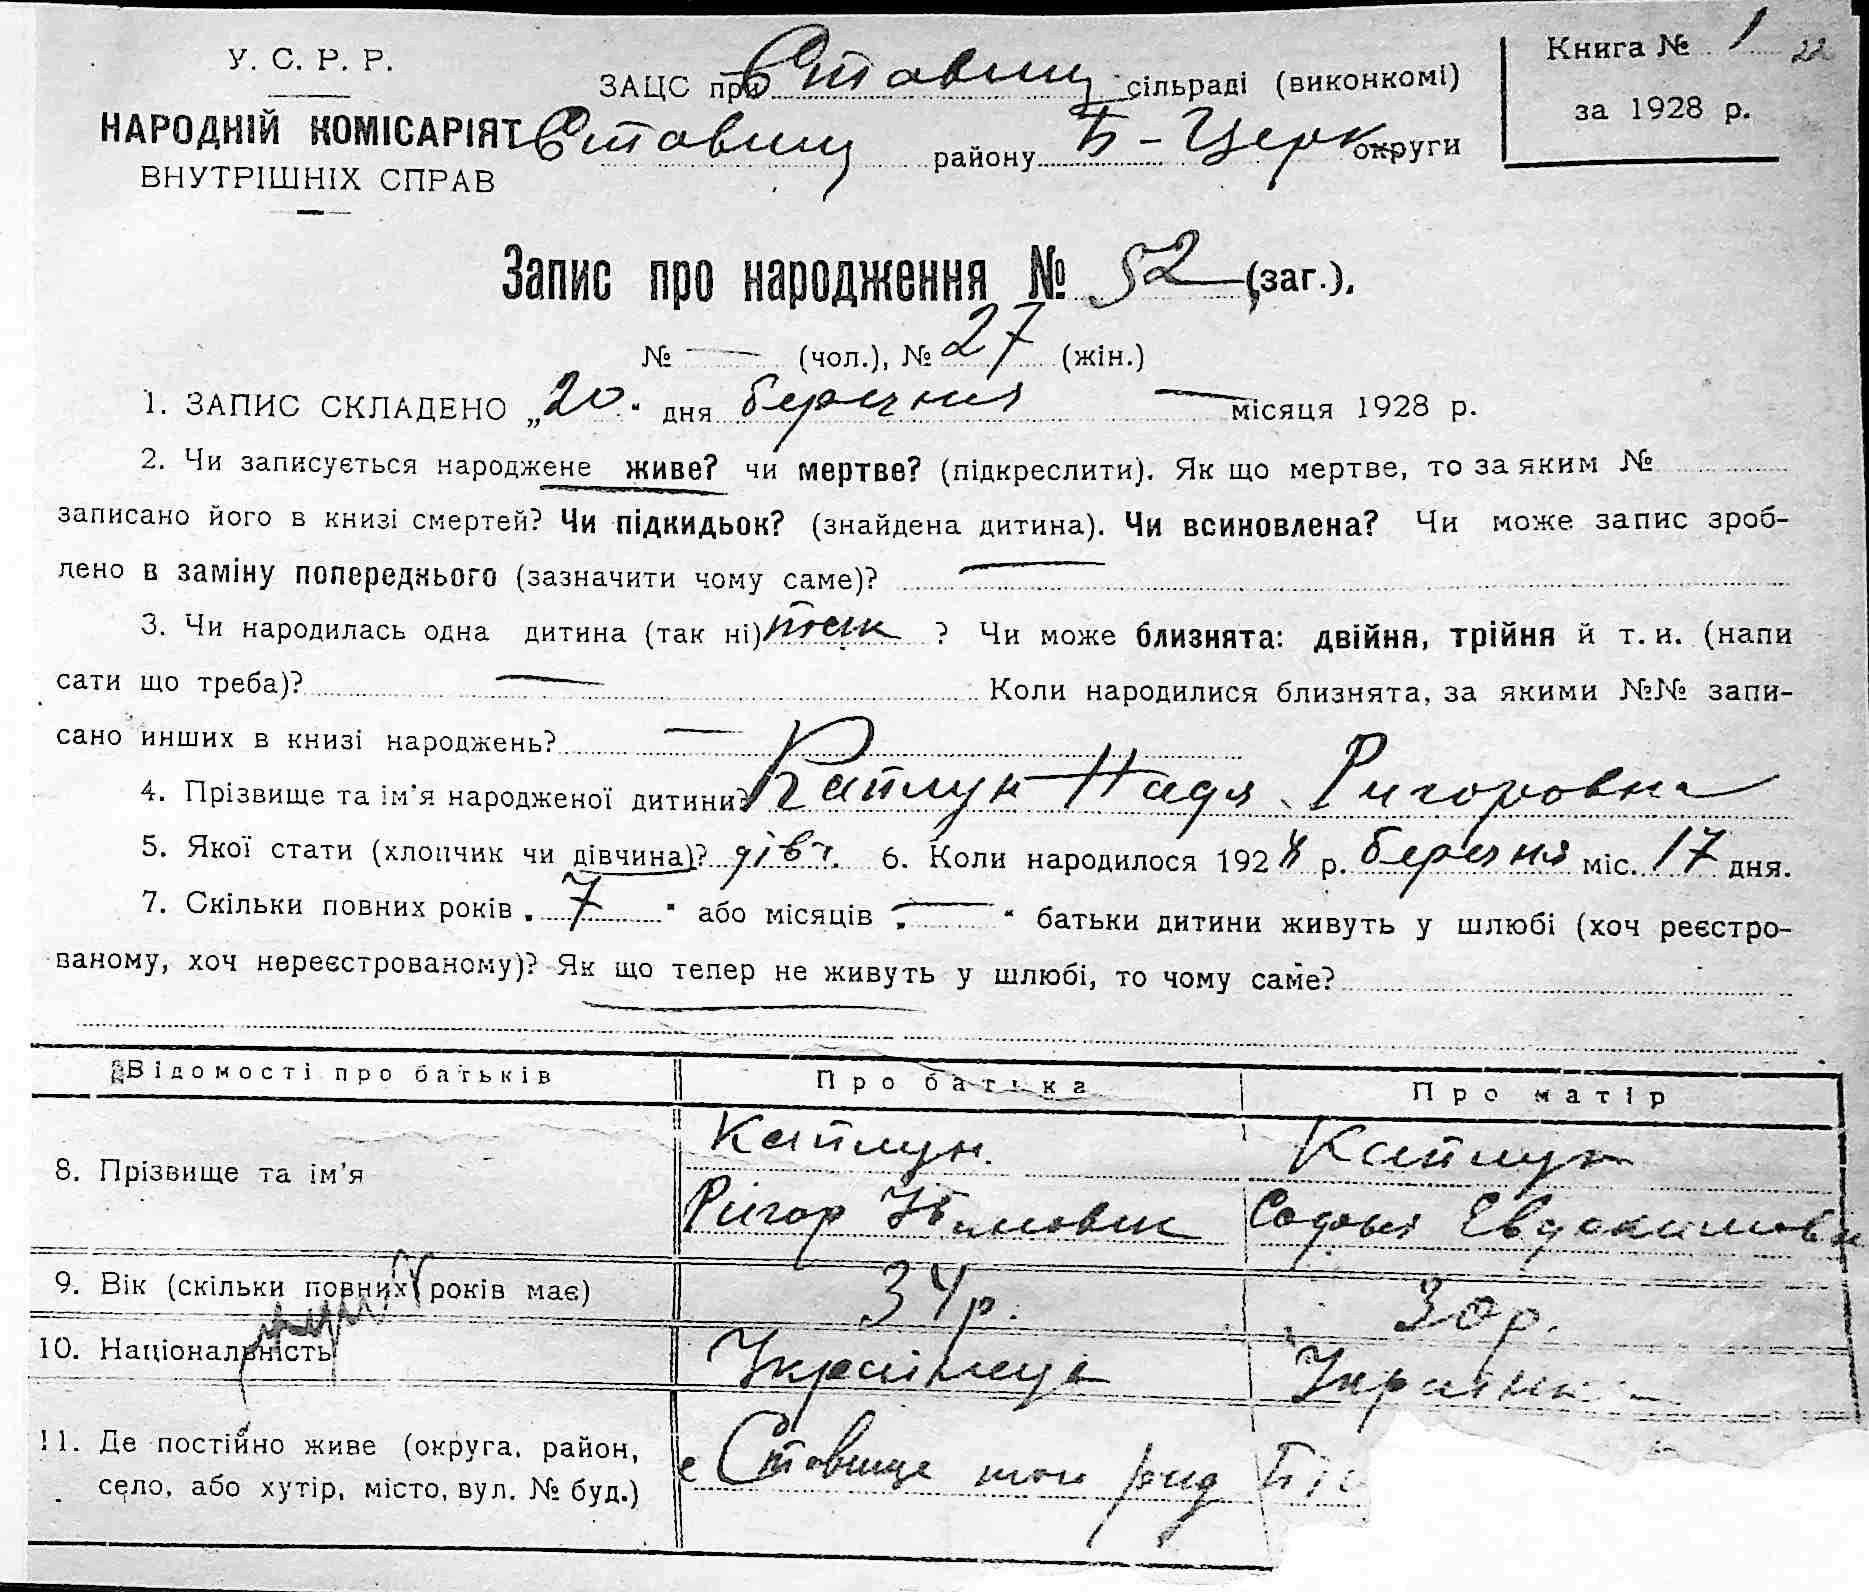 У. С. Р. Р.
НАРОДНІЙ КОМІСАРІЯТ
ВНУТРІШНІХ СПРАВ
ЗАЦС при Ставищ сільраді (виконкомі)
Ставищ району Б-Церк округи
Книга № 1 22
за 1928 р.
Запис про народження № 52 (заг.),
№ — (чол.), № 27 (жін.)
1. ЗАПИС СКЛАДЕНО „20" дня березня — місяця 1928 р.
2. Чи записується народжене живе? чи мертве? (підкреслити). Як що мертве, то за яким №
записано його в книзі смертей? Чи підкидьок? (знайдена дитина). Чи всиновлена? Чи може запис зроб-
лено в заміну попереднього (зазначити чому саме)? —
3. Чи народилась одна дитина (так ні) так ? Чи може близнята: двійня, трійня й т. и. (напи
сати що треба)? — Коли народилися близнята, за якими №№ запи-
сано инших в книзі народжень? —
4. Прізвище та ім'я народженої дитини? Каплун Надя Ригоровна
5. Якої стати (хлопчик чи дівчина)? дівч. 6. Коли народилося 1928 р. березня міс. 17 дня.
7. Скільки повних років „7" або місяців „—" батьки дитини живуть у шлюбі (хоч реєстро-
ваному, хоч нереєстрованому)? Як що тепер не живуть у шлюбі, то чому саме?
Відомості про батьків Про батька Про матір
8. Прізвище та ім'я Каплун. Каплун
Ригор Софья Евдокимовн
9. Вік (скільки повних років має) 34 р. 30 р.
10. Національність Українець Українка
11. Де постійно живе (округа, район, с Ставище
село, або хутір, місто, вул. № буд.)